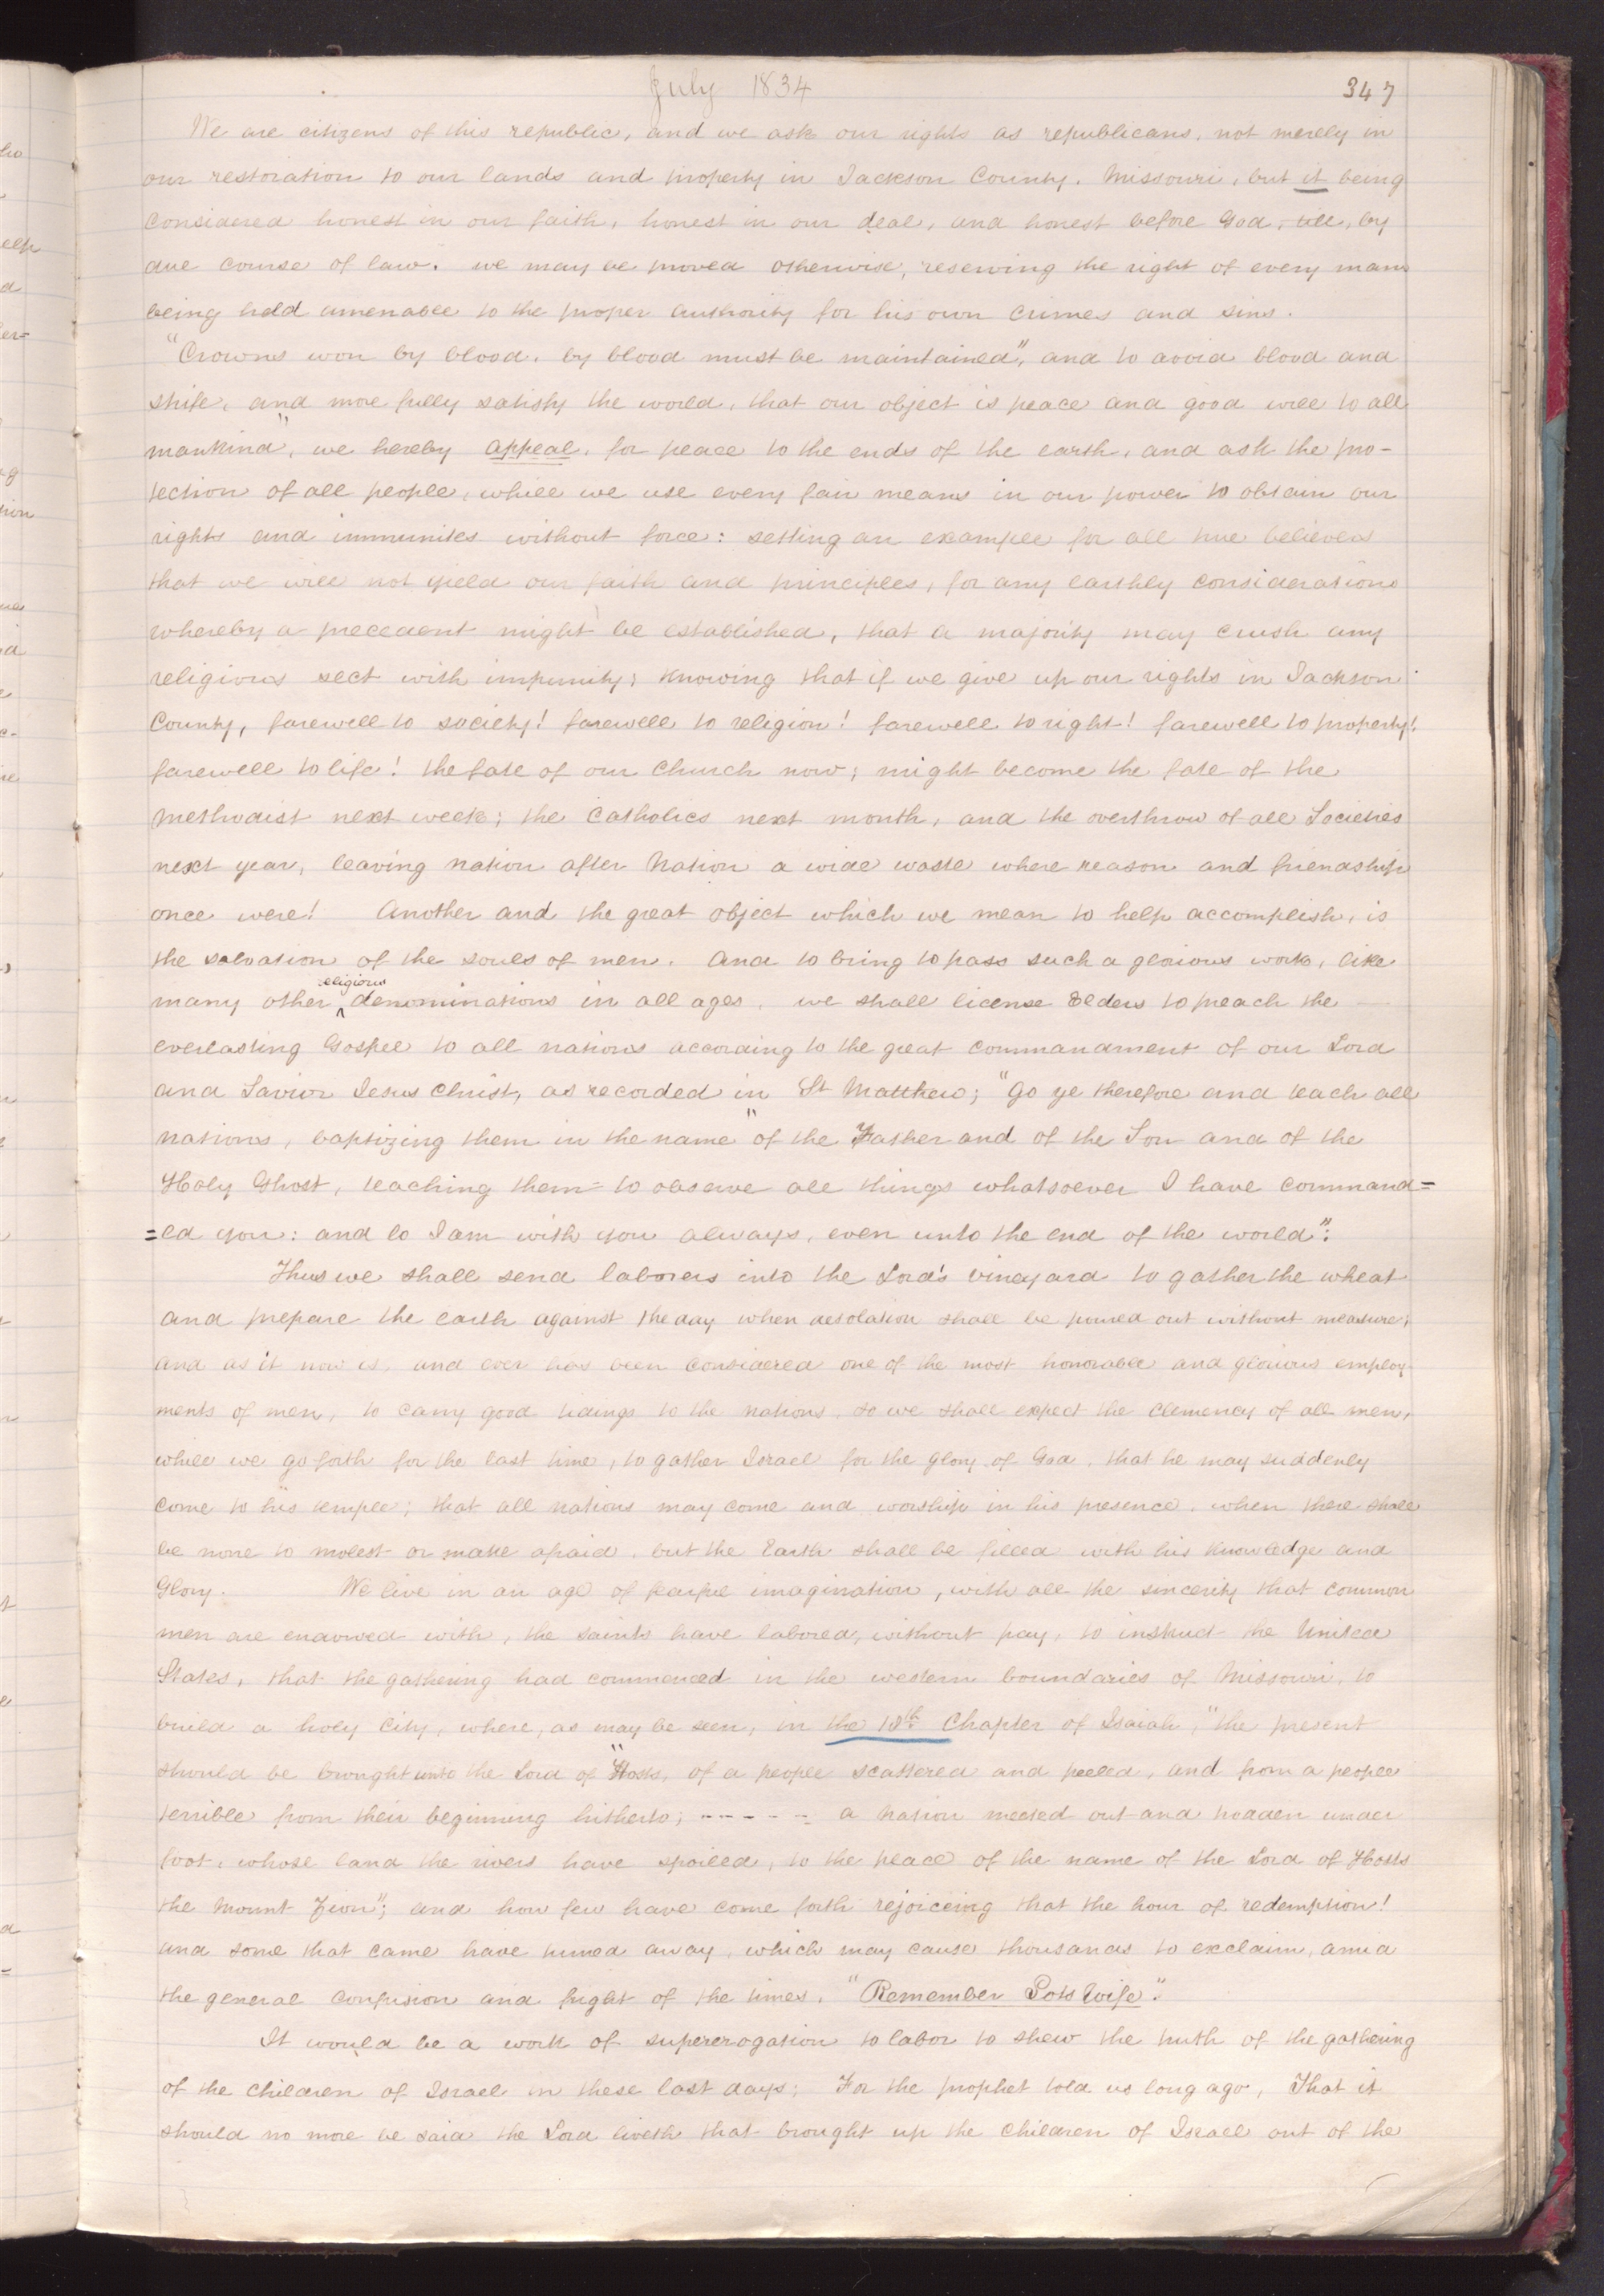 July 1834
347
We are citizens of this republic, and we ask our rights as republicans, not merely in
our restoration to our lands and property in Jackson County, Missouri, but it being
considered honest in our faith, honest in our deal, and honest before God, till, by
due course of law, we may be proved otherwise, reserving the right of every mans
being held amenable to the proper authority for his own crimes and sins.
"Crowns won by blood, by blood must be maintained", and to avoid blood and
strife, and more fully satisfy the world, that our object is peace and good will to all
mankind", we hereby appeal, for peace to the ends of the earth, and ask the pro-
tection of all people, while we use every fair means in our power to obtain our
rights and immunites without force: setting an example for all true believers
that we will not yield our faith and principles, for any earthly considerations
whereby a precedent might be established, that a majority may crush any
religious sect with impunity; knowing that if we give up our rights in Jackson
County, farewell to society! farewell to religion! farewell to right! farewell to property!
farewell to life! the fate of our church now; might become the fate of the
methodist next week; the Catholics next month, and the overthrow of all Societies
next year, leaving nation after Nation a wide waste where reason and friendship
once were! Another and the great object which we mean to help accomplish, is
the salvation of the souls of men. And to bring to pass such a glorious work, like
many other religious denominations in all ages, we shall license Elders to preach the
everlasting Gospel to all nations according to the great commandment of our Lord
and Savior Jesus Christ, as recorded in St Matthew; "Go ye therefore and teach all
nations, baptizing them in the name" of the Father and of the Son and of the
Holy Ghost, teaching them to observe all things whatsoever I have command=
=ed you: and lo I am with you always, even unto the end of the world":
Thus we shall send laborers into the Lord's vineyard to gather the wheat
and prepare the earth against the day when desolation shall be poured out without measure;
and as it now is, and ever has been considered one of the most honorable and glorious employ-
ments of men, to carry good tidings to the nations, so we shall expect the clemency of all men,
while we go forth for the last time, to gather Israel for the glory of God, that he may suddenly
come to his temple; that all nations may come and worship in his presence, when there shall
be none to molest or make afraid, but the Earth shall be filled with his knowledge and
Glory. We live in an age of fearful imagination, with all the sincerity that common
men are endowed with, the saints have labored, without pay, to instruct the United
States, that the gathering had commenced in the western boundaries of Missouri, to
build a holy City, where, as may be seen, in the 18th Chapter of Isaiah, "the present
should be brought unto the Lord of "Hosts, of a people scattered and peeled, and from a people
terrible from their beginning hitherto; - - - - - - a Nation meeted out and trodden under
foot, whose land the rivers have spoiled, to the place of the name of the Lord of Hosts
the Mount Zion"; and how few have come forth rejoiceing that the hour of redemption!
and some that came have turned away, which may cause thousands to exclaim, amid
the general confusion and fright of the times, "Remember Lots Wife".
It would be a work of supererogation to labor to shew the truth of the gathering
of the Children of Israel in these last days; For the prophet told us long ago, That it
should no more be said the Lord liveth that brought up the Children of Israel out of the